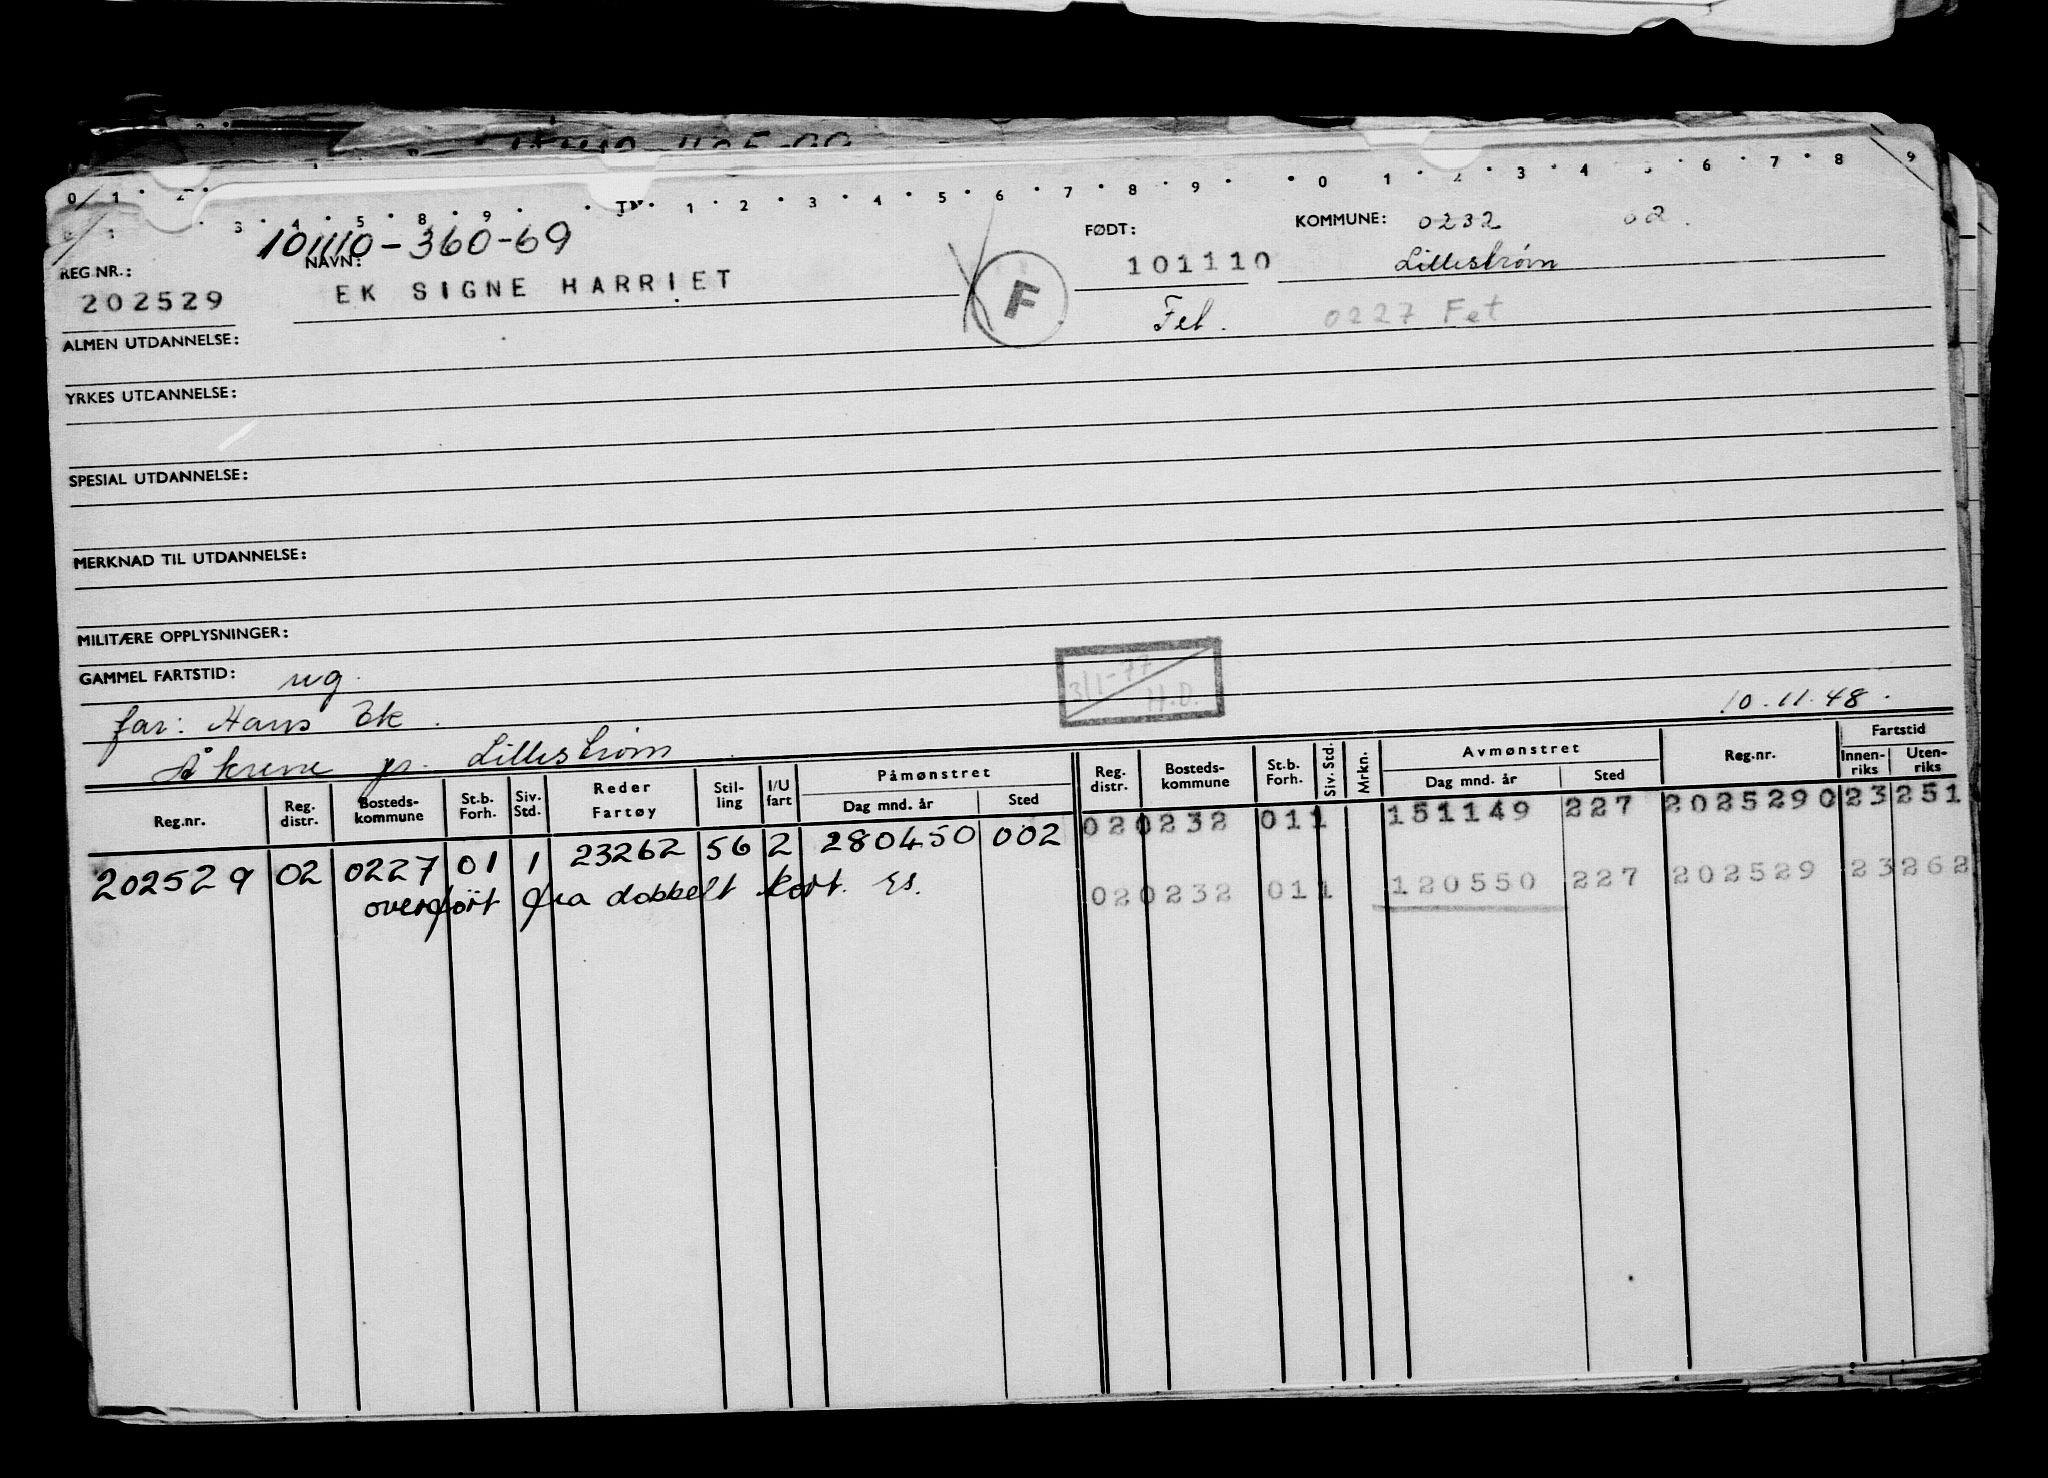 0 1 2 3 4 5 8 9 1 2 3 4 5 6 7 8 9 0 1 2 3 4 5 6 7 8 9
101110-360-69
REG.NR.: NAVN: FØDT: KOMMUNE: 0232 02.
202529 EK SIGNE HARRIET F 101110 Lillestrøm
Fet. 0227 Fet
ALMEN UTDANNELSE:
YRKES UTDANNELSE:
SPESIAL UTDANNELSE:
MERKNAD TIL UTDANNELSE:
MILITÆRE OPPLYSNINGER:
GAMMEL FARTSTID: ug.
3/1-77 H.D.
far: Hans Ek. 10.11.48.
Åkrene pr. Lillestrøm
Reg.nr. Reg. distr. Bosteds-kommune St.b. Forh. Siv. Std. Reder Fartøy Stil-ling I/U fart Påmønstret Dag mnd. år Sted Reg. distr. Bosteds-kommune St.b. Forh. Siv. Std. Mrkn. Avmønstret Dag mnd. år Sted Reg.nr. Fartstid Innen-riks Uten-riks
020232 011 151149 227 202529023251
202529 02 0227 01 1 23262 56 2 280450 002
020232 011 120550 227 202529 23262
overført fra dobbelt kort. Es.